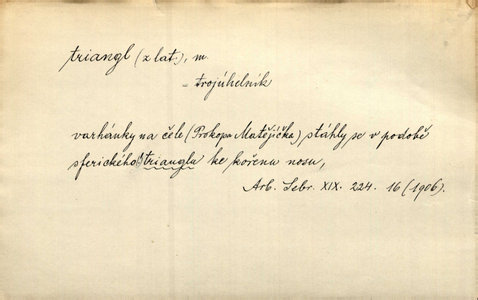 triangl (z lat.), m.
= trojúhelník
varhánky na čele (Prokopa Matějíčka) stáhly se v podobě
sferického trianglu ke kořenu nosu,
Arb. Sebr. XIX. 224. 16 (1906).